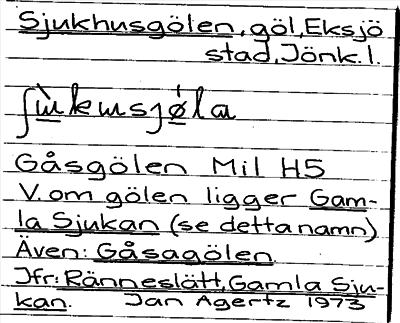 Sjukhusgölen, göl, Eksjö
stad, Jönk.l.
ʃùkʉsjǿla
Gåsgölen Mil H5
V. om gölen ligger Gam-
la Sjukan (se detta namn)
Även: Gåsagölen
Jfr: Ränneslätt, Gamla Sju-
kan. Jan Agertz 1973